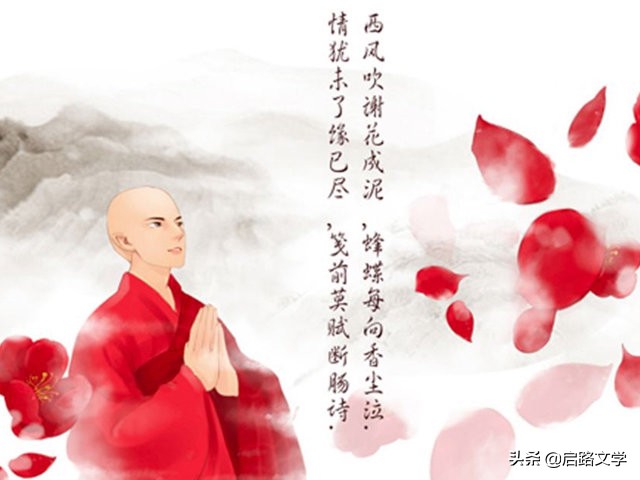 西风吹谢花成泥，蜂蝶每向香尘泣.
情犹未了缘已尽，笺前莫赋断肠诗.
头条 @启路文学